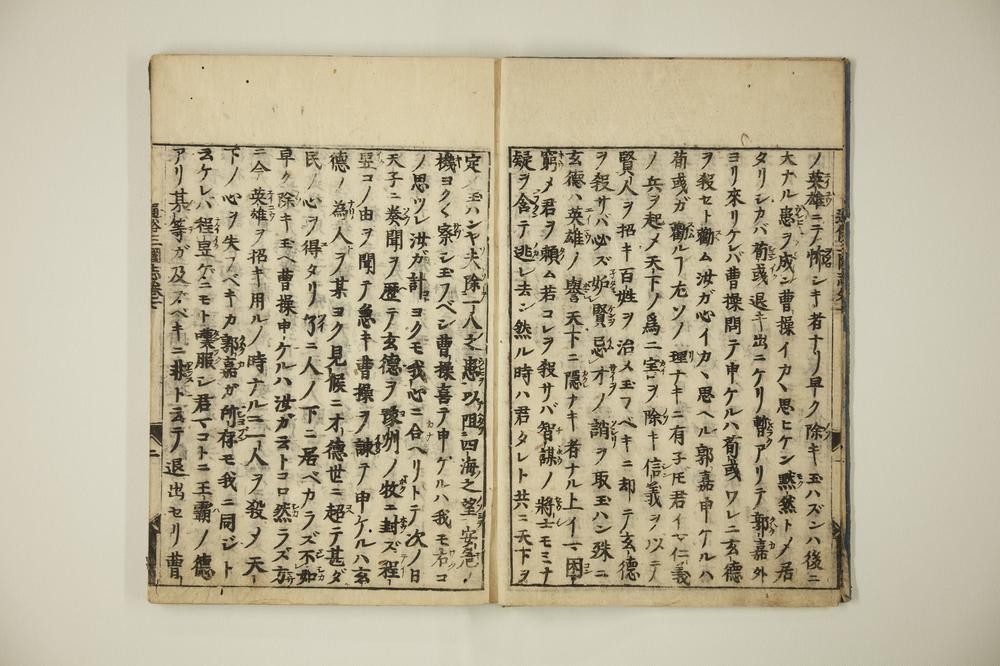 ノ英雄ニテ怖シキ者ナリ早ク除キ玉ハズンハ後ニ
大ナル患ヲ成ン曹操イカヽ思ヒケン黙然トメ居
タリシカバ荀彧退キ出ニケリ暫アリテ郭嘉外
ヨリ來リケレバ曹操問テ申ケルハ荀彧ワレニ玄德
ヲ殺セト勸ム汝ガ心イカヽ思ヘル郭嘉申ケルハ
荀彧ガ勸ルヿ尤ソノ理ナキニ有子圧君イマ仁義
ノ兵ヲ起メ天下ノ爲ニ害ヲ除キ信義ヲ以テ
賢人ヲ招キ百姓ヲ治メ玉フベキニ却テ玄德
ヲ殺サバ必ズ妬賢忌才ノ誚ヲ取玉ハン殊ニ
玄德ハ英雄ノ譽天下ニ隱ナキ者ナル上イマ困
窮メ君ヲ頼ム若コレヲ殺サバ智謀ノ將士モミナ
疑ヲ含テ逃レ去ン然ル時ハ君タレト共ニ天下ヲ
定メ玉ハンヤ夫除一人之患以阻四海之望安危ノ
機ヨクヽ察シ玉フベシ曹操喜テ申ケルハ我モ君コ
ノ思ツレ汝ガ計ヨクモ我心ニ合ヘリトテ次ノ日
天子ニ奏聞ヲ歷テ玄德ヲ豫州ノ牧ニ封ズ程
昱コノ由ヲ聞テ急キ曹操ヲ諫テ申ケルハ玄
德ノ為人ヲ某ヨク見候ニオ德世ニ超テ甚ダ
民ノ心ヲ得タリ了ニ人ノ下ニ居ベカラズ不如
早ク除キ玉ヘ曹操申ケルハ汝ガ云トコロ然ラズ方
ニ今英雄ヲ招キ用ルノ時ナルニ一人ヲ殺メ天
下ノ心ヲ失フベキカ郭嘉ガ所存モ我ニ同ジト
云ケレバ程昱ゲニモト業服シ君マコトニ王霸ノ德
アリ某等ガ及フベキニ非トテノ退出セリ曹
通俗三國志卷七